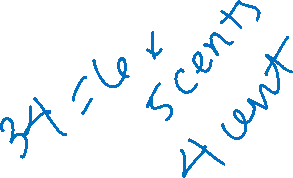 34 = 6 +
5 cents
4 cent